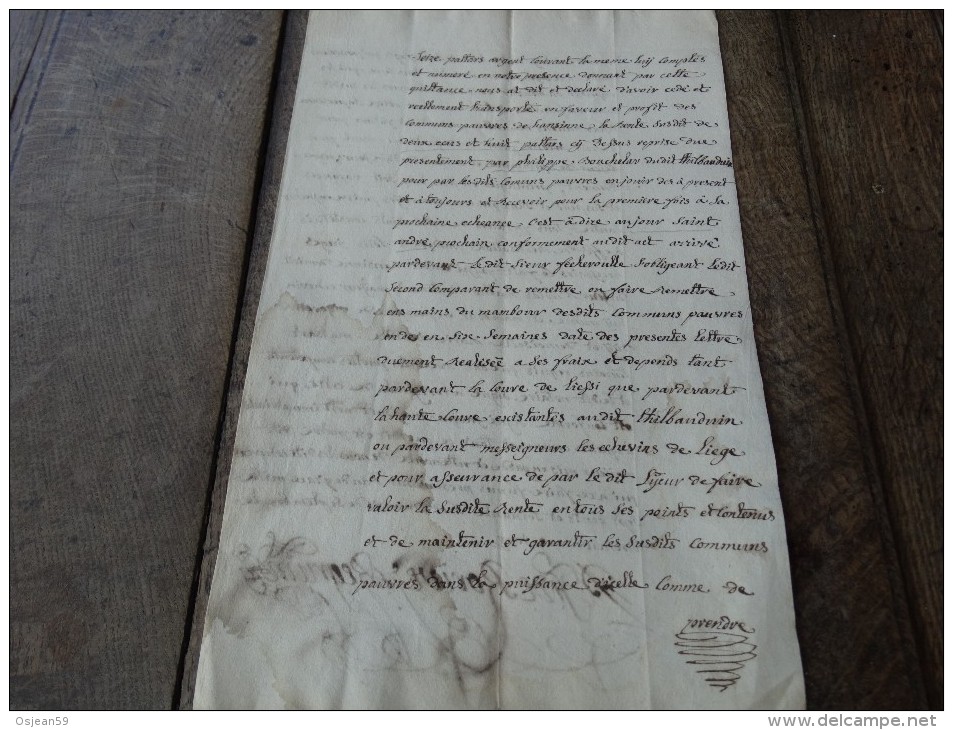 Seize pattars argent courant la meme luy comptés
et numeré en notre presence donnant par cette
quittance nous at dit et declaré d'avoir cedé et
reellement transporté en faveur et profit des
Communs pauvres de hansinne la Rente Susdit de
deux ecus et huit pattars cy Dessus reprise due
presentement par philippe Bouchelar dudit thilbauduin
pour par lesdits Comuns pauvres en jouir des à present
et à toujours et Recevoir pour la premiere fois à la
prochaine echeance C'est à dire au jour Saint
andre prochain conformement audit act arrivé
pardevant Le dit Sieur fecheroulle Sobligeant Ledit
Second Comparant de remettre ou faire Remettre
ens mains du mambour desdits Communs pauvres
endes en Six Semaines daté des presentes Lettre
Duement Realiseé a Ses fraix et depends tant
pardevant la Coure de Liessi que pardevant
la haute Coure existantes audit thilbauduin
ou pardevant messeigneurs les echevins de Liege
et pour asseurance de par le dit Sieur de faire
valoir la Susdite Rente en tous Ses points et Contenus
et de maintenir et garantir les Susdits Communs
pauvres dans la puissance d'icelle Comme de
prendre
Osjean59
www.delcampe.net